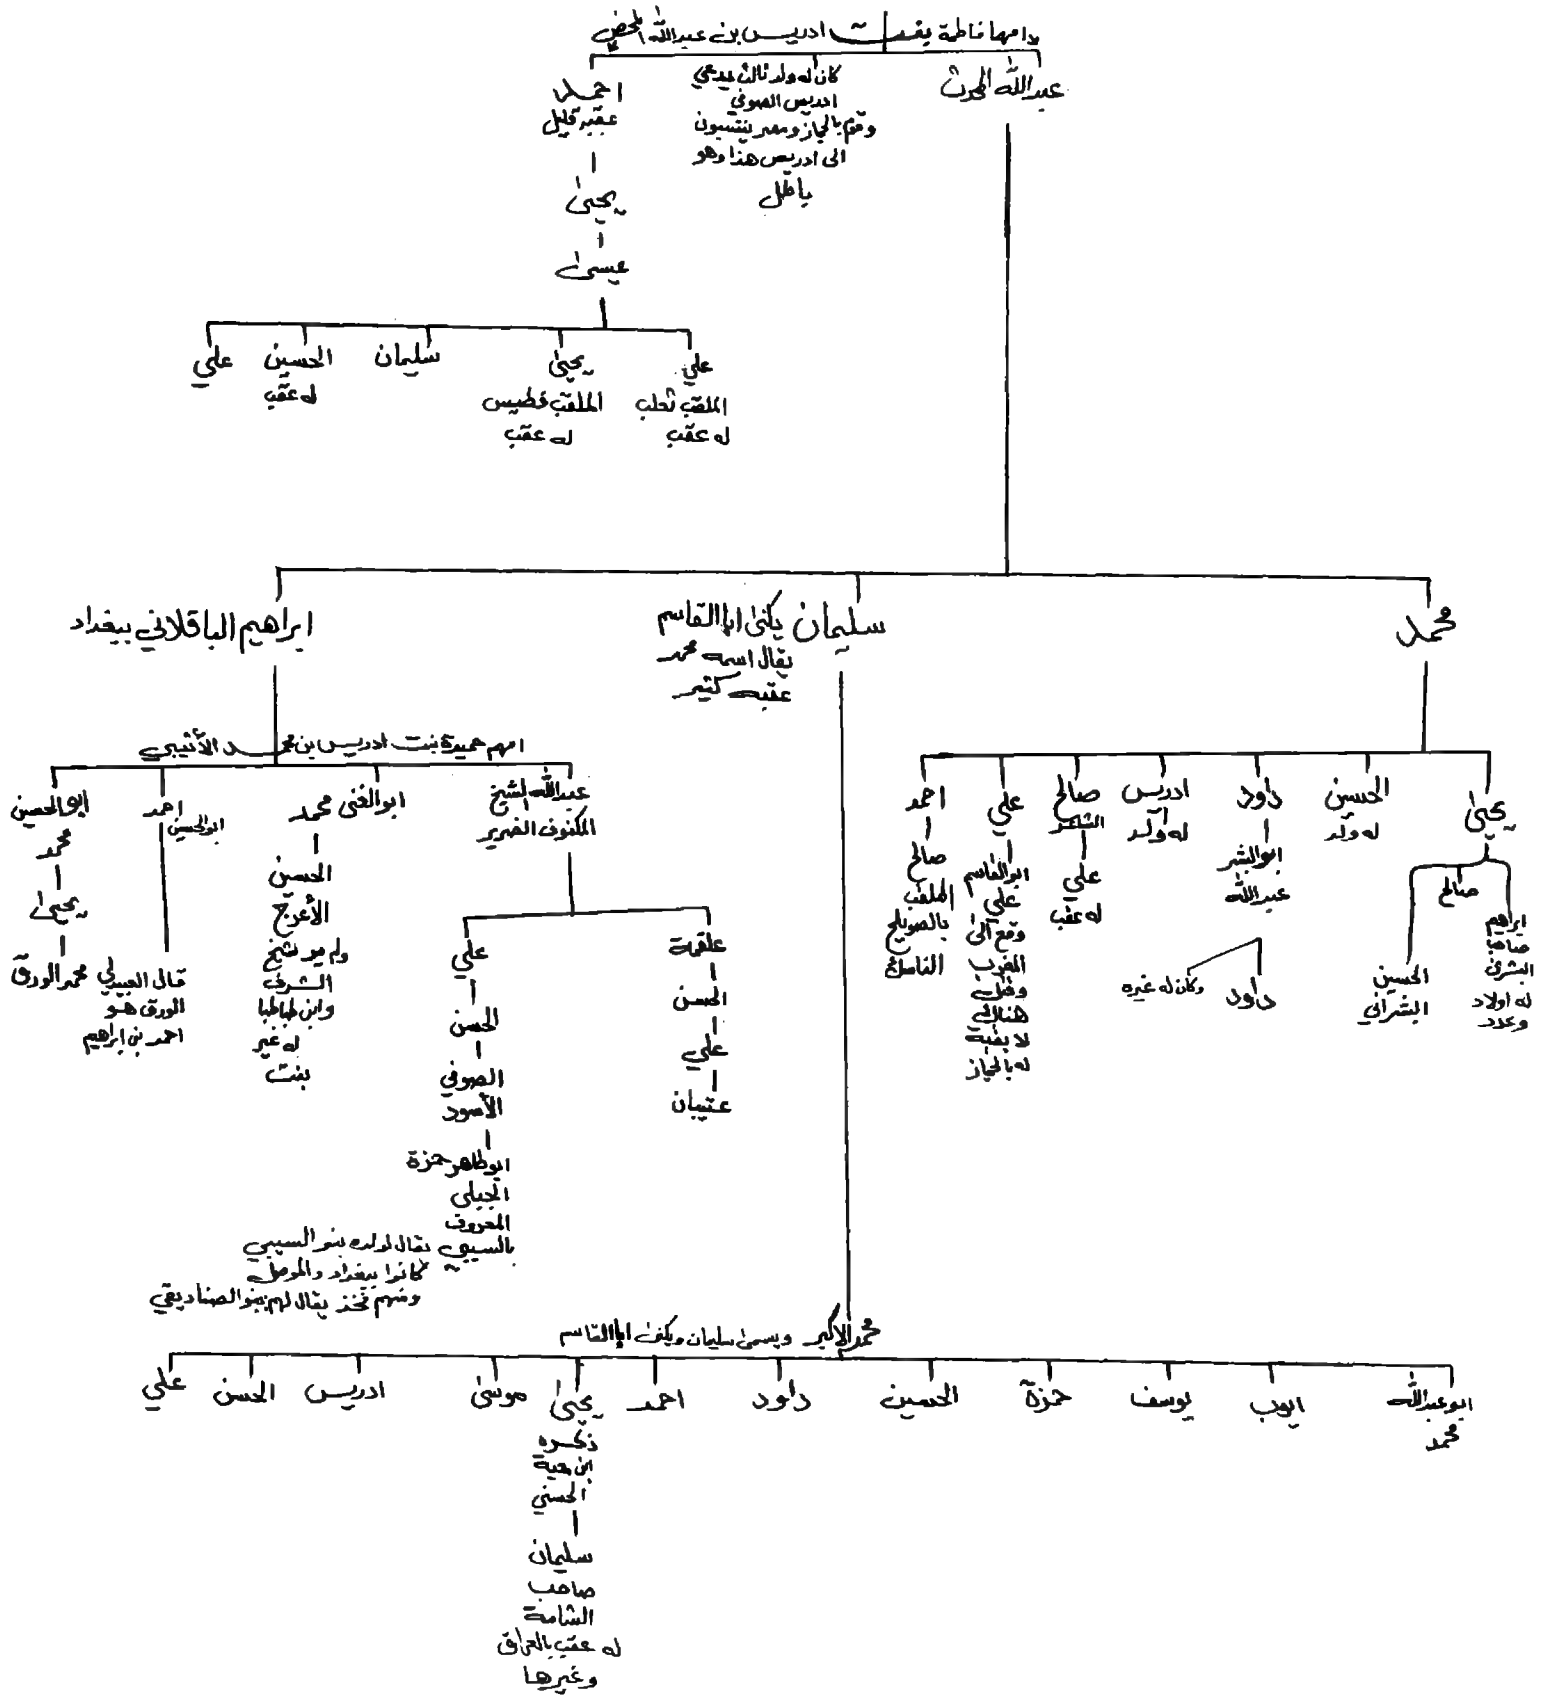 وامها فاطمة بنت ادريس بن عبدالله المحض
عبدالله
كان له ولد ثالث يدعي
ادريس الصوفي
وقوم بالحجاز ومصر ينتسبون
الى ادريس هذا وهو
باطل
احمد
عقبه قليل
يحيى
عيسى
علي
الملقب ثعلب
له عقب
يحيى
الملقب فطيس
له عقب
سليمان
الحسين
له عقب
علي
محمد
سليمان يكنى ابا القاسم
يقال اسمه محمد
عقبه كثير
ابراهيم الباقلاني ببغداد
يحيى
ابراهيم
صاحب
له اولاد
وعدد
صالح
الحسين
البشراني
الحسن
له ولد
داود
ابوالبشر
عبدالله
داود
وكان له غيره
ادريس
له ولد
صالح
الشاعر
علي
له عقب
علي
ابوالقاسم
علي
وقع الى
المغرب
وقتل
هناك
لا بقية
له بالحجاز
احمد
صالح
الملقب
بالصويلح
الناسك
امهم حميدة بنت ادريس بن محمد الأثيبي
عبدالله الشيخ
المكفوف الضرير
علقمة
الحسن
علي
عتيبان
علي
الحسن
الصوفي
الأسود
ابوطاهر حمزة
الجبلي
المعروف
بالسيبي
يقال لولده بنو السيبي
كانوا ببغداد والموصل
ومنهم فخذ يقال لهم بنو الصناديقي
ابوالغنى محمد
الحسين
الأعرج
ولم يره شيخ
الشرف
وابن طباطبا
له غير
بنت
احمد
ابوالحسين
قال العبيدلي
الورق هو
احمد بن ابراهيم
ابوالحسين
محمد
يحيى
محمد الورق
محمد الاكبر ويسمى سليمان ويكنى ابا القاسم
ابوعبدالله
محمد
ايوب
يوسف
حمزة
الحسين
داود
احمد
يحيى
ذكره
ابن معية
الحسني
سليمان
صاحب
الشامة
له عقب بالعراق
وغيرها
موسى
ادريس
الحسن
علي